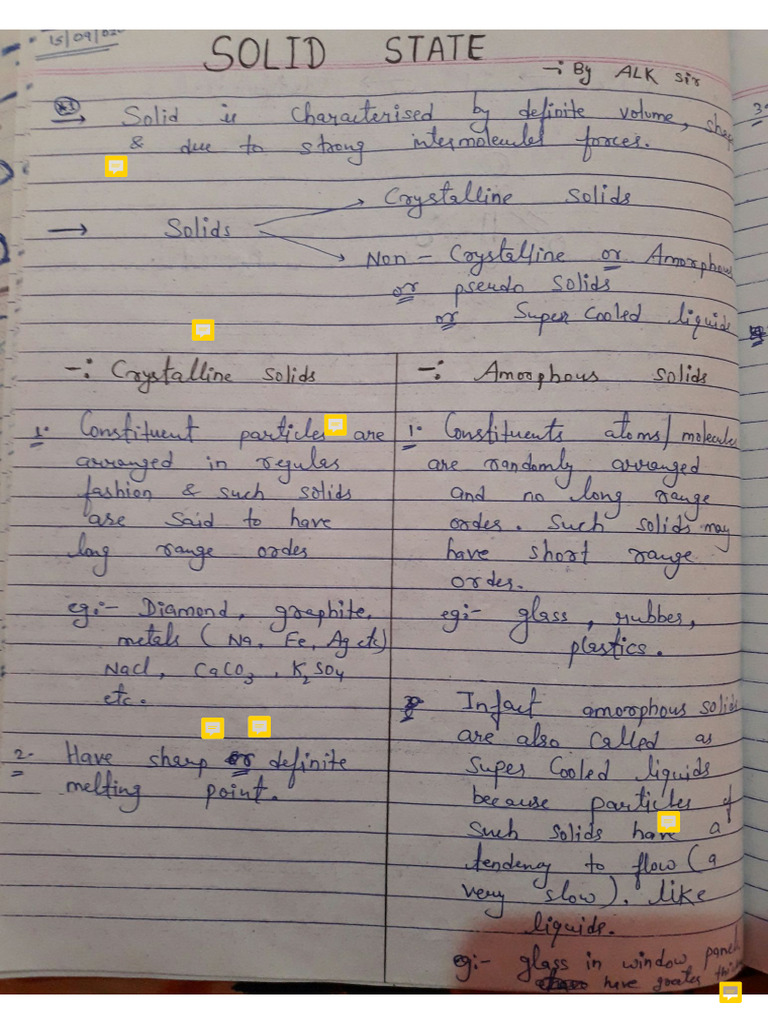 15/09/020
SOLID STATE
-: By ALK Sir
→ Solid is characterised by definite volume, shape
& due to strong intermolecular forces.
Crystalline Solids
→ Solids
Non-Crystalline or Amorphous
or pseudo Solids
or Super Cooled liquids
-: Crystalline Solids
1. Constituent particles are
arranged in regular
fashion & such solids
are said to have
long range order
eg:- Diamond, graphite,
metals (Na, Fe, Ag etc)
NaCl, CaCO3, K2SO4
etc.
2- Have sharp or definite
melting point.
-: Amorphous Solids
1. Constituents atoms/molecules
are randomly arranged
and no long range
order. Such solids may
have short range
order.
eg:- glass, rubber,
plastics.
Infact amorphous solids
are also called as
Super Cooled liquids
because particles of
such solids have a
tendency to flow (a
very slow). like
liquids.
eg:- glass in window panel
have greater